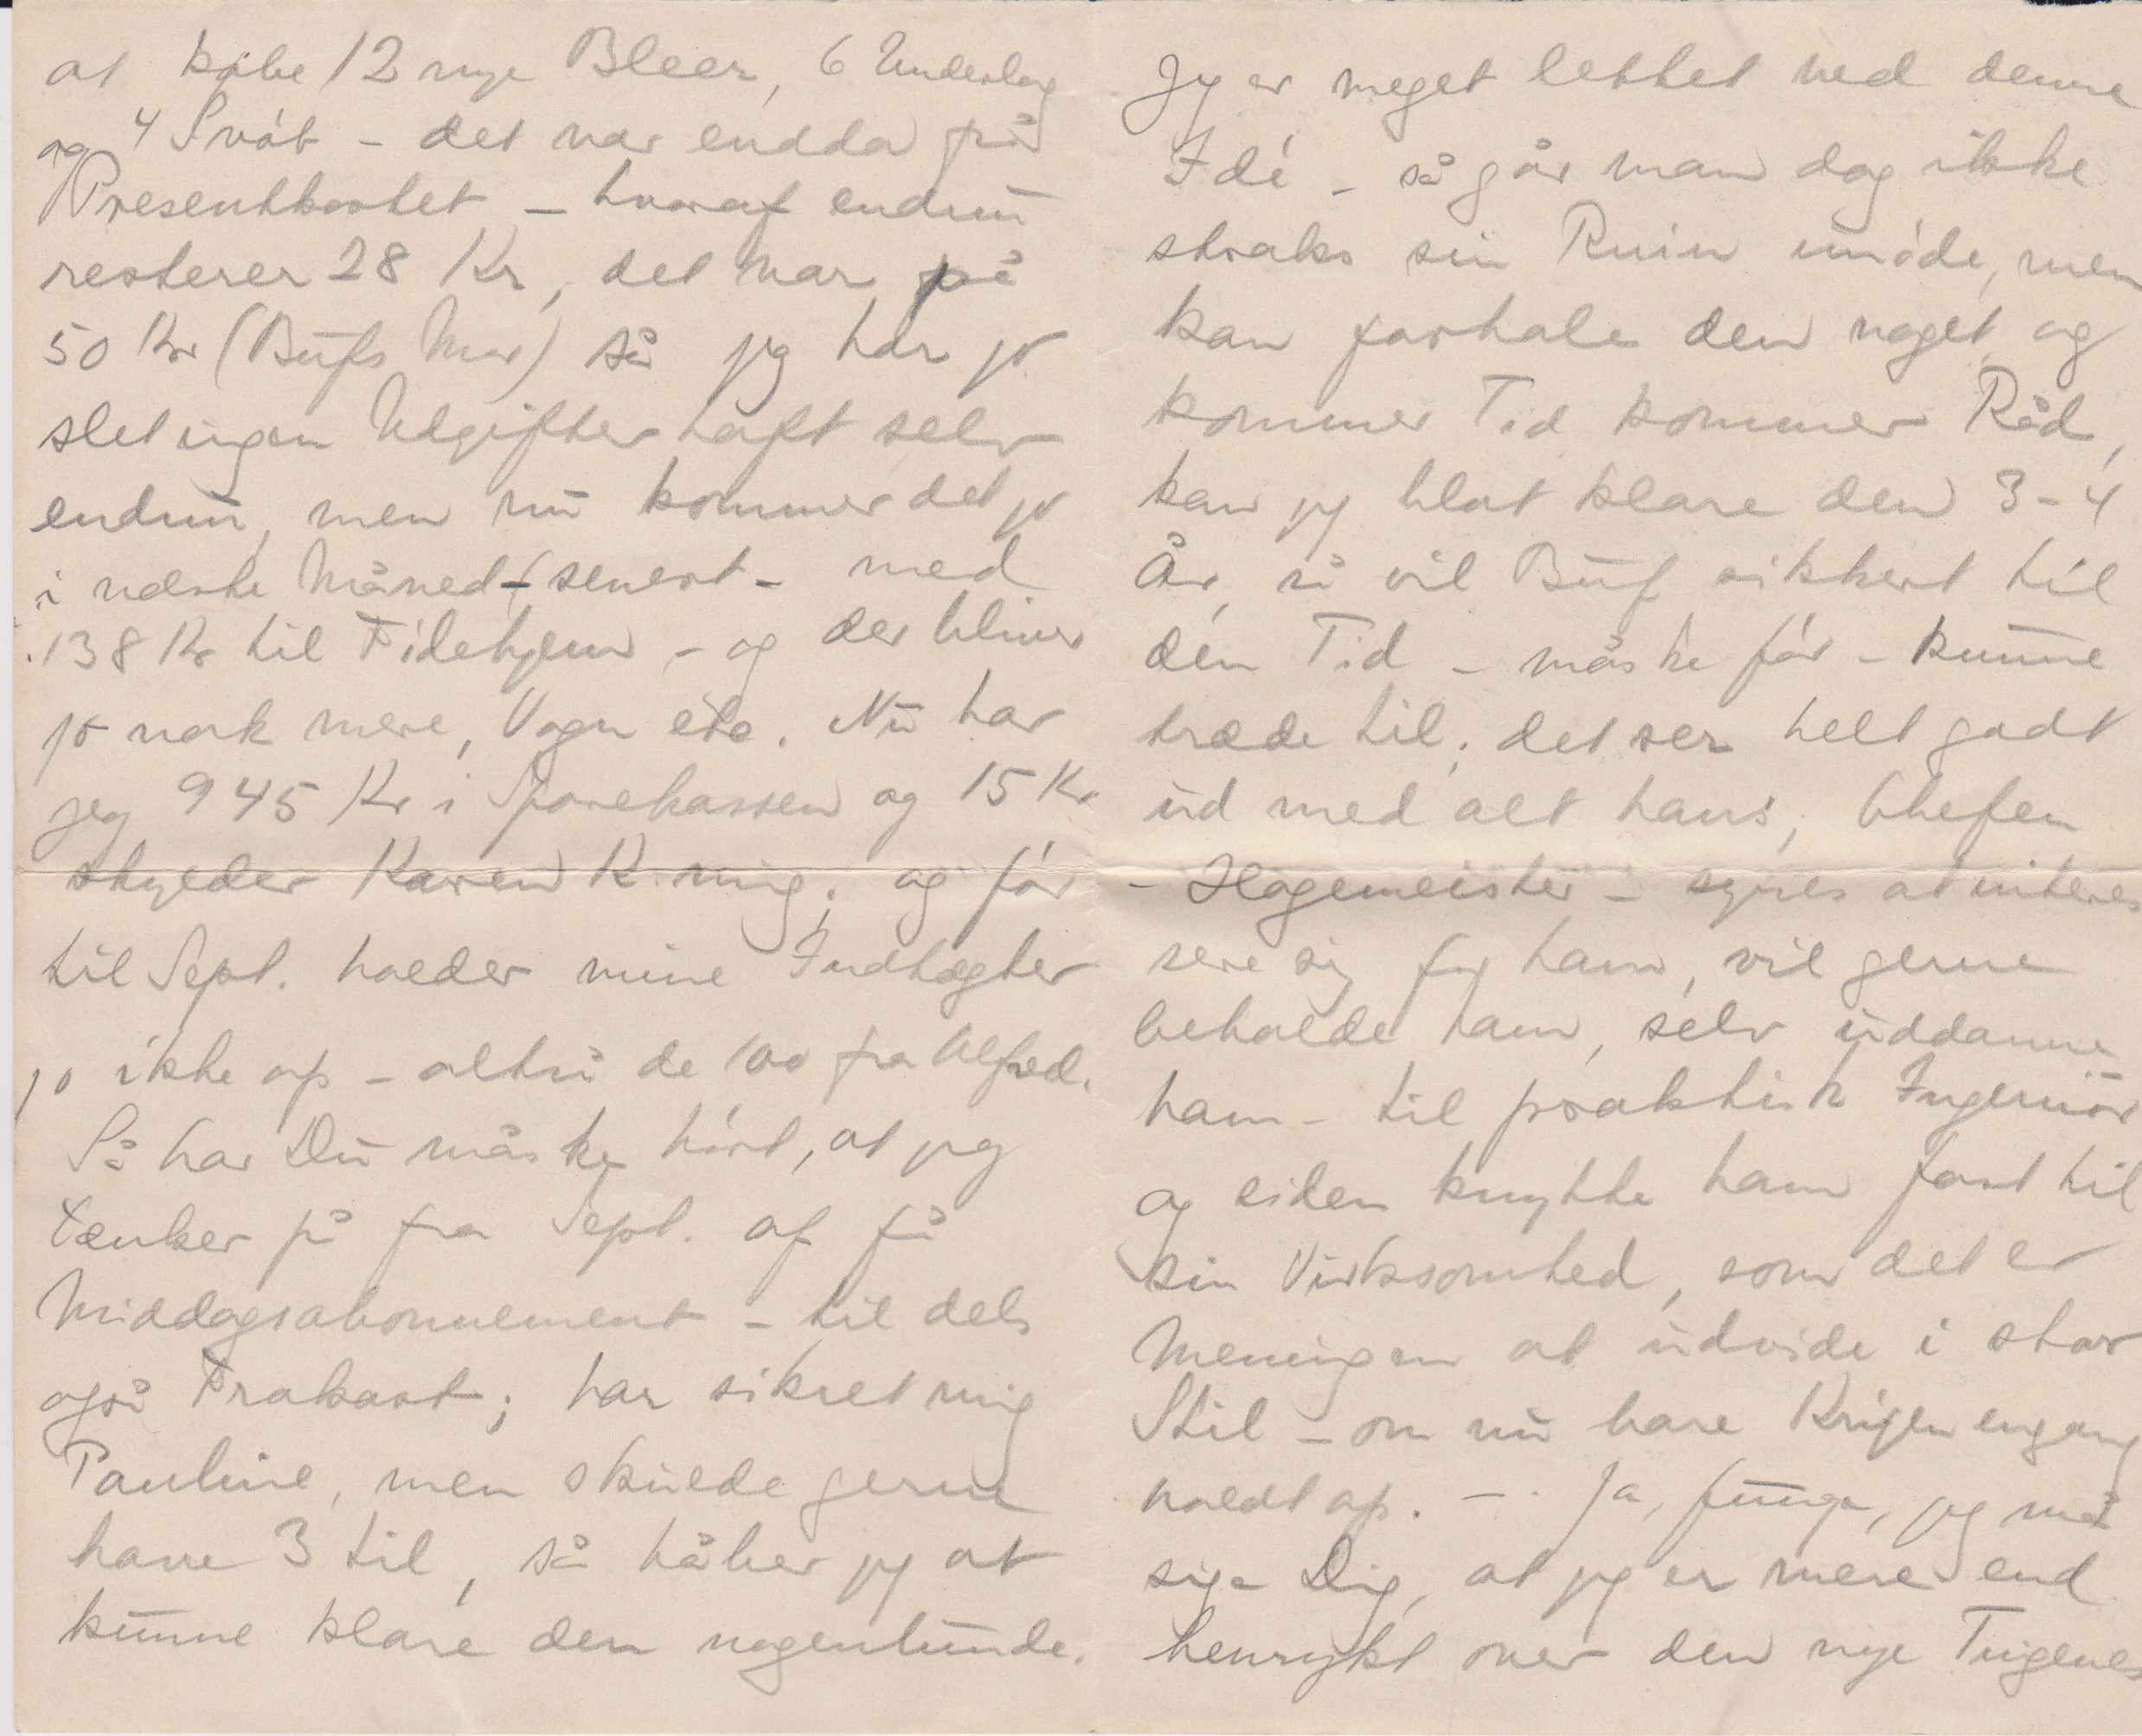 at købe 12 nye Bleer, 6 Underlag
og 4 Svøb - det var endda på
Presentkortet - hvoraf endnu
resterer 28 Kr, det var på
50 Kr (Bufs Mor) så jeg har jo
slet ingen Udgifter haft selv
endnu, men nu kommer det jo
i næste Måned - senest - med
138 Kr til Fødehjem - og der bliver
jo nok mere, Vogn etc. Nu har
jeg 945 Kr i Sparekassen og 15 Kr
skylder Karen K. mig; og før
til Sept. holder mine Indtægter
jo ikke op - altså de 100 fra Alfred.
Så har Du måske hørt, at jeg
tænker på fra Sept. af få
Middagsabonnement - til dels
også Frokost; har sikret mig
Pauline, men skulde gerne
have 3 til, så håber jeg at
kunne klare den nogenlunde.
Jeg er meget lettet ved denne
Idé - så går man dog ikke
straks sin Ruin imøde, men
kan forhale den noget og
kommer Tid kommer Råd,
kan jeg blot klare den 3-4
År, så vil Buf sikkert til
den Tid - måske før - kunne
træde til; det ser helt godt
ud med alt hans, Chefen
- Hagemeister - synes at interes
sere sig for ham, vil gerne
beholde ham, selv uddanne
ham - til praktisk Ingeniør
og siden knytte ham fast til
sin Virksomhed, som det er
Meningen at udvide i stor
Stil - om nu bare Krigen engang
holdt op. - . Ja, Junge, jeg må
sige Dig, at jeg er mere end
henrykt over den nye Tingenes